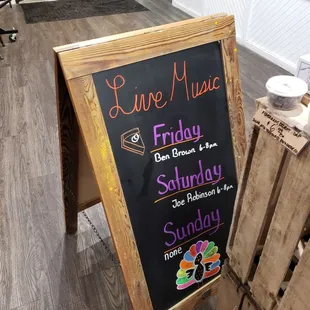 Live Music
Friday
Ben Brown 6-8pm
Saturday
Joe Robinson 6-8pm
Sunday
none